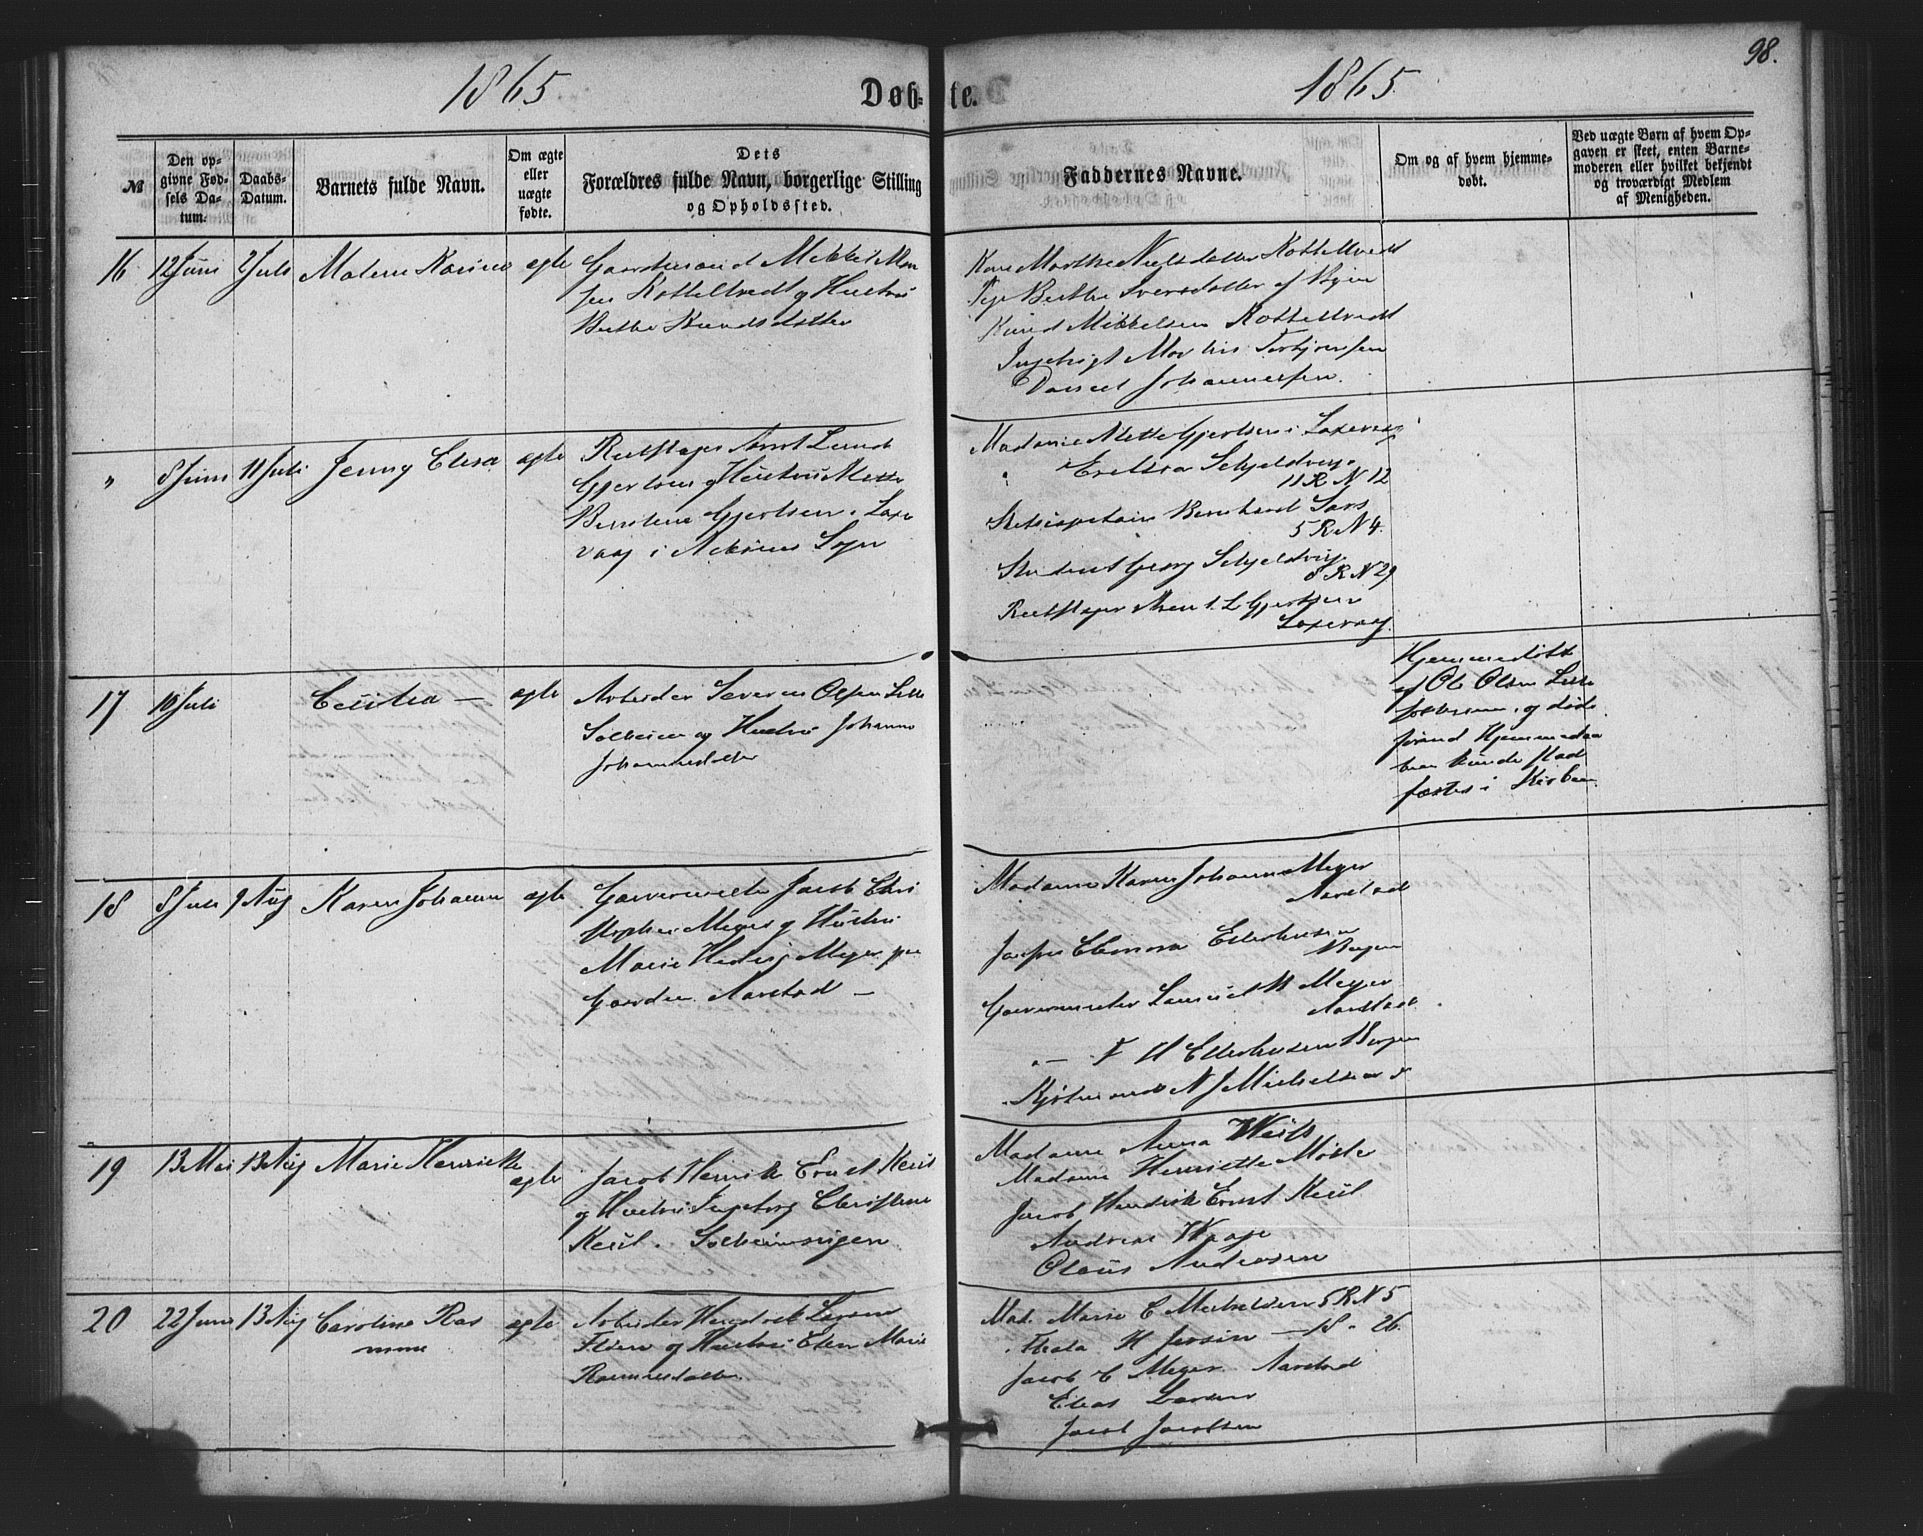 98.
1865
Døb-te.
1865
№
Den op-
givne Fød-
sels Da-
tum.
Daabs-
Datum.
Barnets fulde Navn.
Om ægte
eller
uægte
fødte.
Dets
Forældres fulde Navn, borgerlige Stilling
og Opholdssted.
Faddernes Navne.
Om og af hvem hjemme-
døbt.
Ved uægte Børn af hvem Op-
gaven er skeet, enten Barne-
moderen eller hvilket bekjendt
og troværdigt Medlem
af Menigheden.
16
12 Juni
2 Juli
Malene Karine
ægte
Gaardmand Mikkel Mon
sen Kattetvedt og Hustru
Berthe Knudsdatter
Kone Marthe Nielsdatter
Pige Berthe Iversdatter af Byen
Knud Mikkelsen
Ingebrigt Martin Torbjørnsen
Daniel Johannessen.
"
8 Juni
11 Juli
Jenny Elisa
ægte
Rebslager Arent Lund
Gjertsen og Hustru Mette
Gjertsen i Laxe
vaag i Askøens Sogn
Madame Mette Gjertsen i Laxevaag
" Schjeldrup
11 R N 12
Skibscapitain Bernhard Sars
5 R N 4.
Student Georg Schjeldrup
8 R N 29
Rebslager Arent L Gjertsen
Laxevaag.
17
10 Juli
Cecilia —
ægte
Arbeider Severin Olsen Lille
Solheim og Hustru Johanne
Johannesdatter
Hjemmedøbt
af Ole Olsen Lille
solheim, og døde
førend Hjemmedaa
ben kunde stad
fæstes i Kirken
18
8 Juli
9 Aug
Karen Johanne
ægte
Garvermester Jacob Chri
stopher Meyer og Hustru
Marie Hedvig Meyer paa
Gaarden Aarstad —
Madame Karen Johanne Meyer
Aarstad
Jomfru Elenora Ellerhusen
Bergen
Garvermester Samuel M Meyer
Aarstad.
" — F H Ellerhusen Bergen
Kjøbmand N J Michelsen
19
13 Mai
13 Aug
Marie Henriette
ægte
Jacob Henrik Ernst Keil
og Hustru Ingeborg Christine
Keil. Solheimsvigen
Madame Anna
Madame Henriette
Jacob Hendrik Ernst Keil
Andreas
Olaus Andersen
20
22 Juni
13 Aug
Caroline Ras
mine
ægte
Arbeider Hendrik Larsen
og Hustru Elen Marie
Rasmusdatter
Mad. Marie C Michelsen 5 R N 5
Thala H Jersin — 18 - 26.
Jacob C Meyer Aarstad
Elias Larsen
Jacob Jacobsen